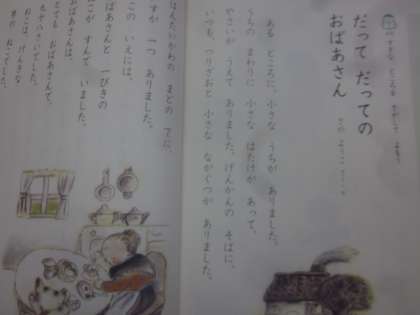 だって だっての
おばあさん
さの ようこ さく・え
ある ところに、小さな うちが ありました。
うちの まわりに 小さな はたけが あって、
やさいが うえて ありました。げんかんの そばに、
いつも、つりざおと 小さな ながぐつが ありました。
はんたいがわの まどの 下に、
いすが 一つ ありました。
この いえには、
おばあさんと 一ぴきの
ねこが すんで いました。
おばあさんは、
とても おばあさんで、
九十八さいでした。
ねこは、げんきな
男の ねこでした。